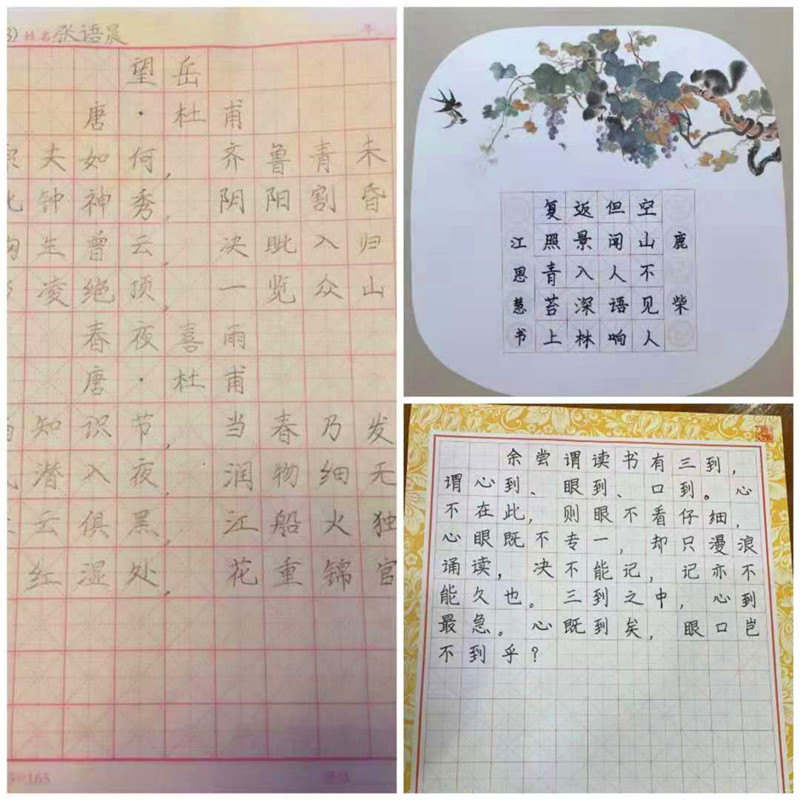 3) 姓名 张语晨
年
望岳
唐·杜甫
宗夫如何，齐鲁青未
化钟神秀，阴阳割昏
胸生曾云，决眦入归
凌绝顶，一览众山
春夜喜雨
唐·杜甫
知识节，当春乃发
潜入夜，润物细无
云俱黑，江船火独
红湿处，花重锦官
鹿柴
空山不见人
但闻人语响
返景入深林
复照青苔上
江恩慧书
余尝谓读书有三到，
谓心到、眼到、口到。心
不在此，则眼不看仔细，
心眼既不专一，却只漫浪
诵读，决不能记，记亦不
能久也。三到之中，心到
最急。心既到矣，眼口岂
不到乎？